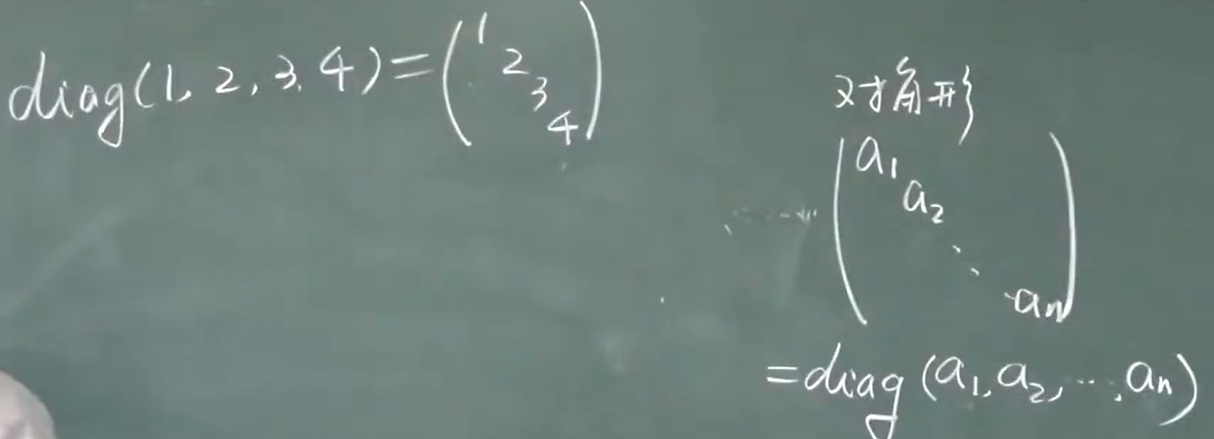 diag(1, 2, 3, 4)=(1 2 3 4)
对角形
(a₁ a₂ ⋱ aₙ)
=diag(a₁, a₂, ⋯, aₙ)